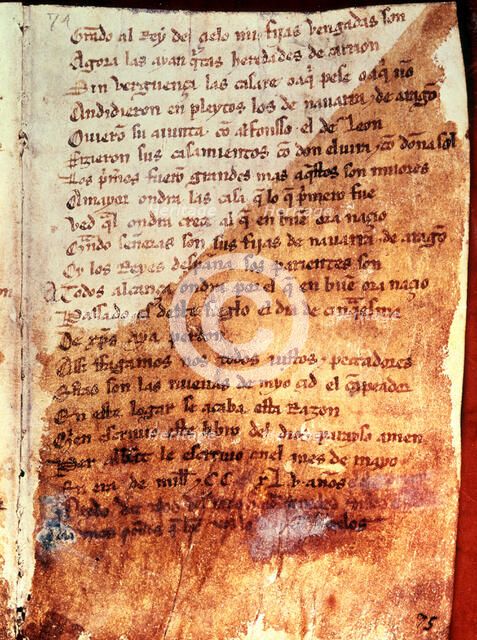 74
Grado al Rey del çielo mis fijas vengadas son
Agora las ayan q̃tas heredades de carrion
Sin verguença las casare o aq̃ pese o aq̃ nõ
Andidieron en pleytos los de nauarra ⁊ de aragõ
Ouierõ su aiunta cõ alfonsso el de Leon
Fizieron sus casamientos cõ don eluira ⁊ cõ doña sol
Los p̃meros fuerõ grandes mas aq̃stos son miiores
A mayor ondra las casa q̃ lo q̃ p̃mero fue
Ved q̃l ondra creçe al q̃ en buẽ ora naçio
Quãdo señoras son sus fijas de nauarra ⁊ de aragõ
Oy los Reyes despaña sos parientes son
A Todos alcança ondra por el q̃ en buẽ ora naçio
Passado es deste sieglo el dia de cinq̃esma
De xp̃s aya perdon
Assi ffagamos nos todos iustos ⁊ peccadores
Estas son las nueuas de myo çid el cãpeador
En este logar se acaba esta Razon
Quien escriuio este libro del dios parayso amen
Per abbat le escriuio enel mes de mayo
En era de mill ⁊ CC xLv años
75